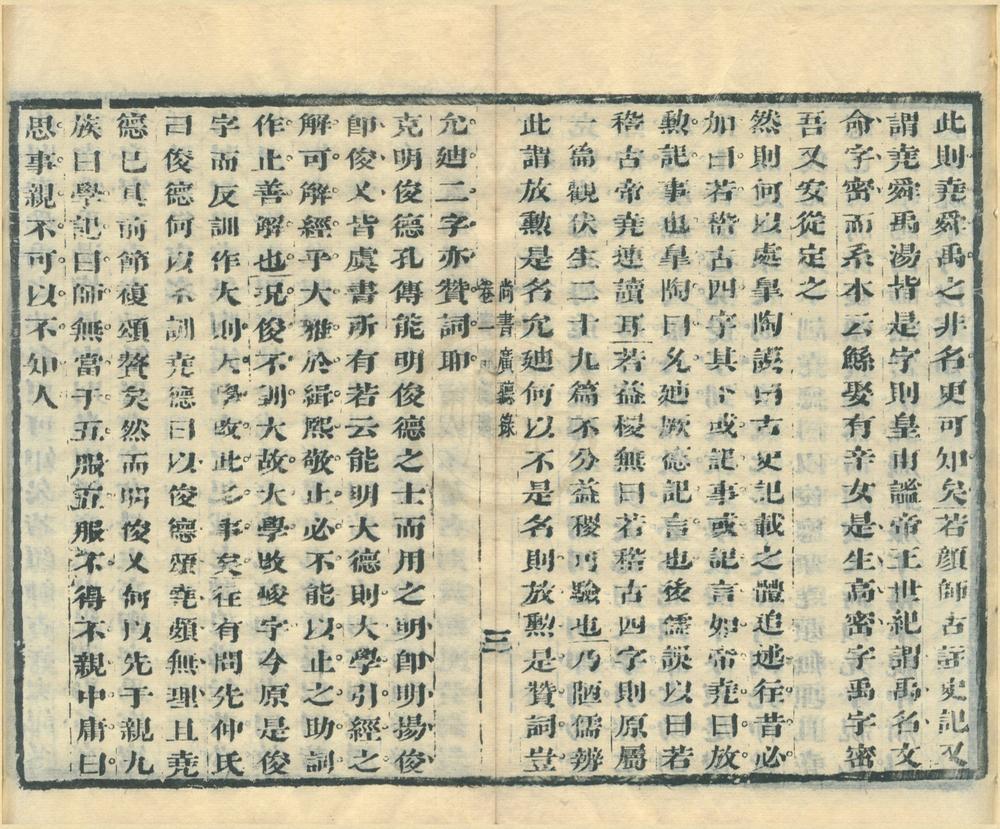 此則堯舜禹之非名更可知矣若顏師古註史記又
謂堯舜禹湯皆是字則皇甫謐帝王世紀謂禹名文
命字密而系本云鯀娶有辛女是生高密字禹字密
吾又安從定之
然則何以處皐陶謨曰古史記載之體追述往昔必
加曰若稽古四字其下或記事或記言如帝堯曰放
勳記事也皐陶曰允廸厥德記言也後儒誤以曰若
稽古帝堯連讀耳若益稷無曰若稽古四字則原屬
一篇觀伏生二十九篇不分益稷可驗也乃陋儒辨
此謂放勳是名允廸何以不是名則放勳是贊詞豈
尚書廣聽錄
卷一
三
允廸二字亦贊詞耶
克明俊德孔傳能明俊德之士而用之明卽明揚俊
卽俊乂皆虞書所有若云能明大德則大學引經之
解可解經乎大雅於緝熙敬止必不能以止之助詞
作止善解也況俊不訓大故大學改峻字今原是俊
字而反訓作大則大學改此多事矣往有問先仲氏
曰俊德何以不訓堯德曰以俊德頌堯頗無理且堯
德已具前節複頌贅矣然而明俊又何以先于親九
族曰學記曰師無當于五服五服不得不親中庸曰
思事親不可以不知人